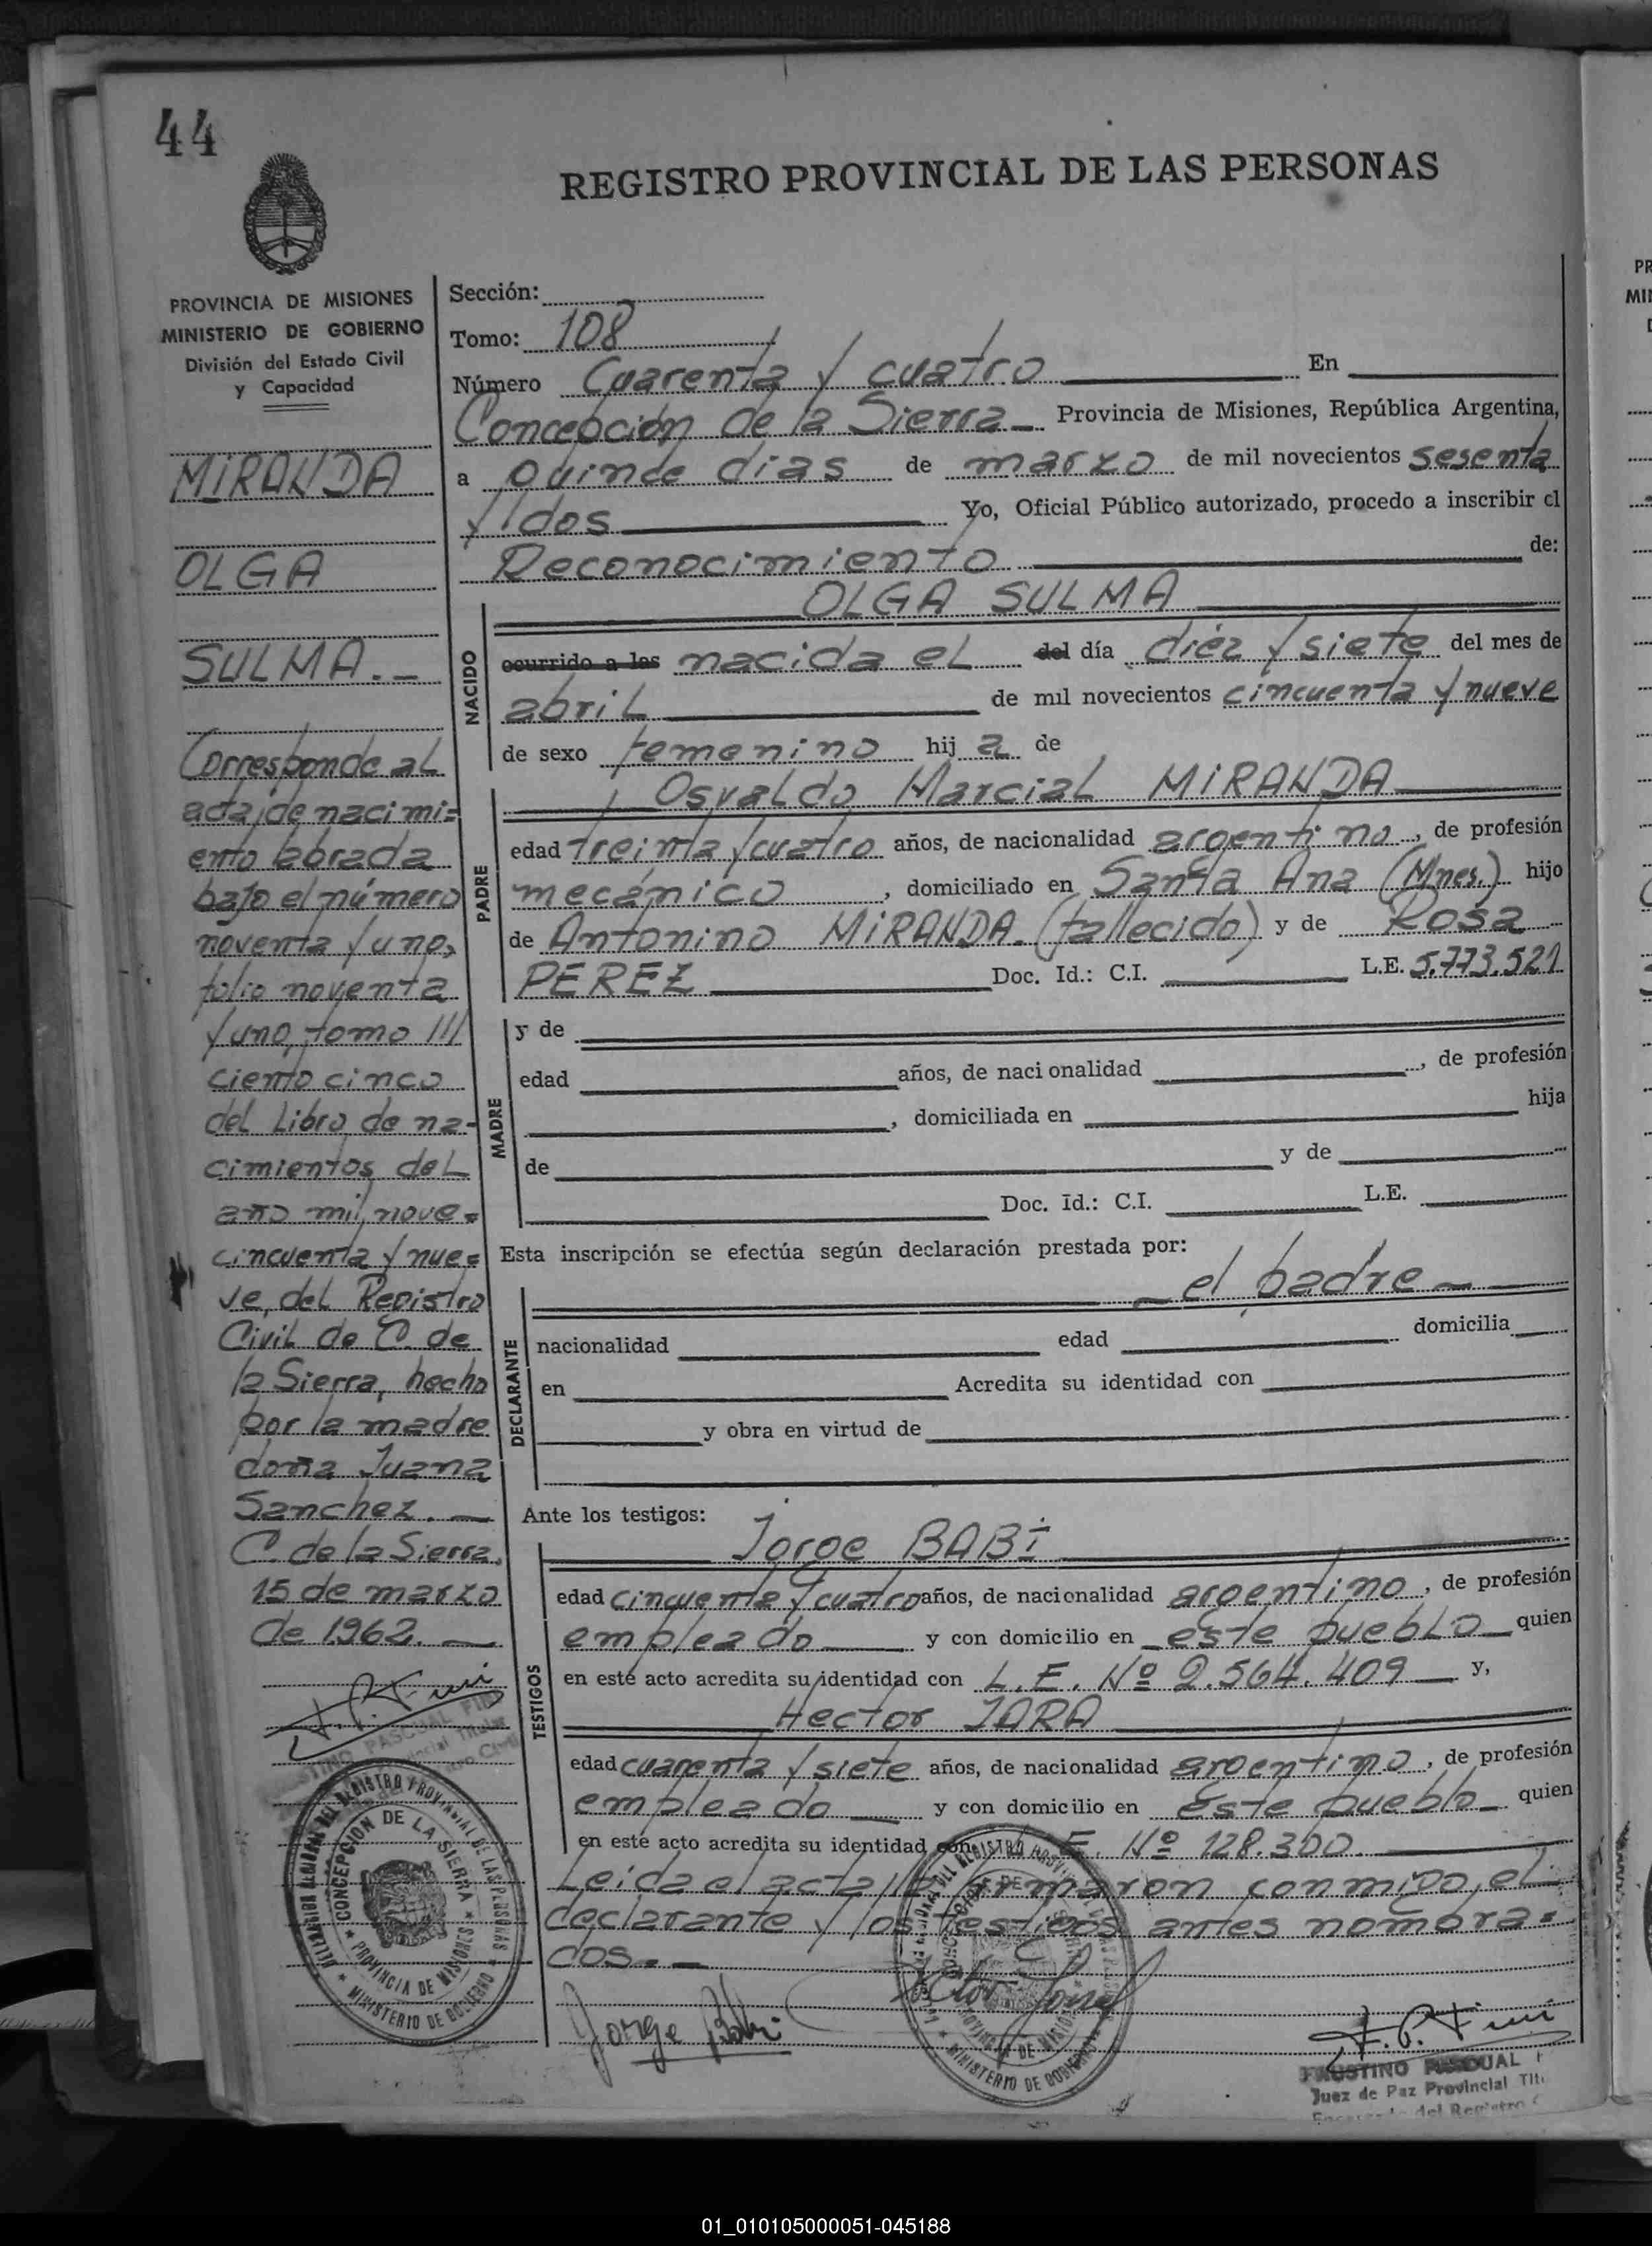 44
REGISTRO PROVINCIAL DE LAS PERSONAS
PROVINCIA DE MISIONES
MINISTERIO DE GOBIERNO
División del Estado Civil
y Capacidad
MIRANDA
OLGA
SULMA. -
Corresponde al
acta de nacimi=
ento labrada
bajo el número
noventa y uno,
folio noventa
y uno, tomo III
ciento cinco
del Libro de na-
cimientos del
año mil nove=
cincuenta y nue=
ve, del Registro
Civil de C. de
la Sierra, hecho
por la madre
doña Juana
Sanchez. -
C. de la Sierra,
15 de marzo
de 1962. -
Sección:
Tomo: 108
Número Cuarenta y cuatro En
Concepción de la Sierra - Provincia de Misiones, República Argentina,
a quince días de marzo de mil novecientos sesenta
y dos Yo, Oficial Público autorizado, procedo a inscribir el
Reconocimiento de:
OLGA SULMA
NACIDO
ocurrido a las nacida el del día diez y siete del mes de
abril de mil novecientos cincuenta y nueve
de sexo femenino hij a de
Osvaldo Marcial MIRANDA
PADRE
edad treinta y cuatro años, de nacionalidad argentino, de profesión
mecánico, domiciliado en Santa Ana (Mnes.) hijo
de Antonino MIRANDA (fallecido) y de Rosa
PEREZ Doc. Id.: C.I. L.E. 5.773.521
MADRE
y de
edad años, de nacionalidad , de profesión
, domiciliada en hija
de y de
Doc. Id.: C.I. L.E.
Esta inscripción se efectúa según declaración prestada por:
- el padre -
DECLARANTE
nacionalidad edad domicilia
en Acredita su identidad con
y obra en virtud de
Ante los testigos:
TESTIGOS
Jorge BABI
edad cincuenta y cuatro años, de nacionalidad argentino, de profesión
empleado y con domicilio en este pueblo quien
en este acto acredita su identidad con L. E. Nº 2.564.409 y,
Hector JARA
edad cuarenta y siete años, de nacionalidad argentino, de profesión
empleado y con domicilio en este pueblo quien
en este acto acredita su identidad con E. Nº 128.300
Leida el acta la firmaron conmigo el
declarante y los testigos antes nombra=
dos. -
DELEGACION REGIONAL DEL REGISTRO PROVINCIAL DE LAS PERSONAS
CONCEPCION DE LA SIERRA
PROVINCIA DE MISIONES
MINISTERIO DE GOBIERNO
MINISTERIO DE GOBIERNO
Jorge Babi
FAUSTINO PASCUAL
Juez de Paz Provincial
del Registro
01_010105000051-045188